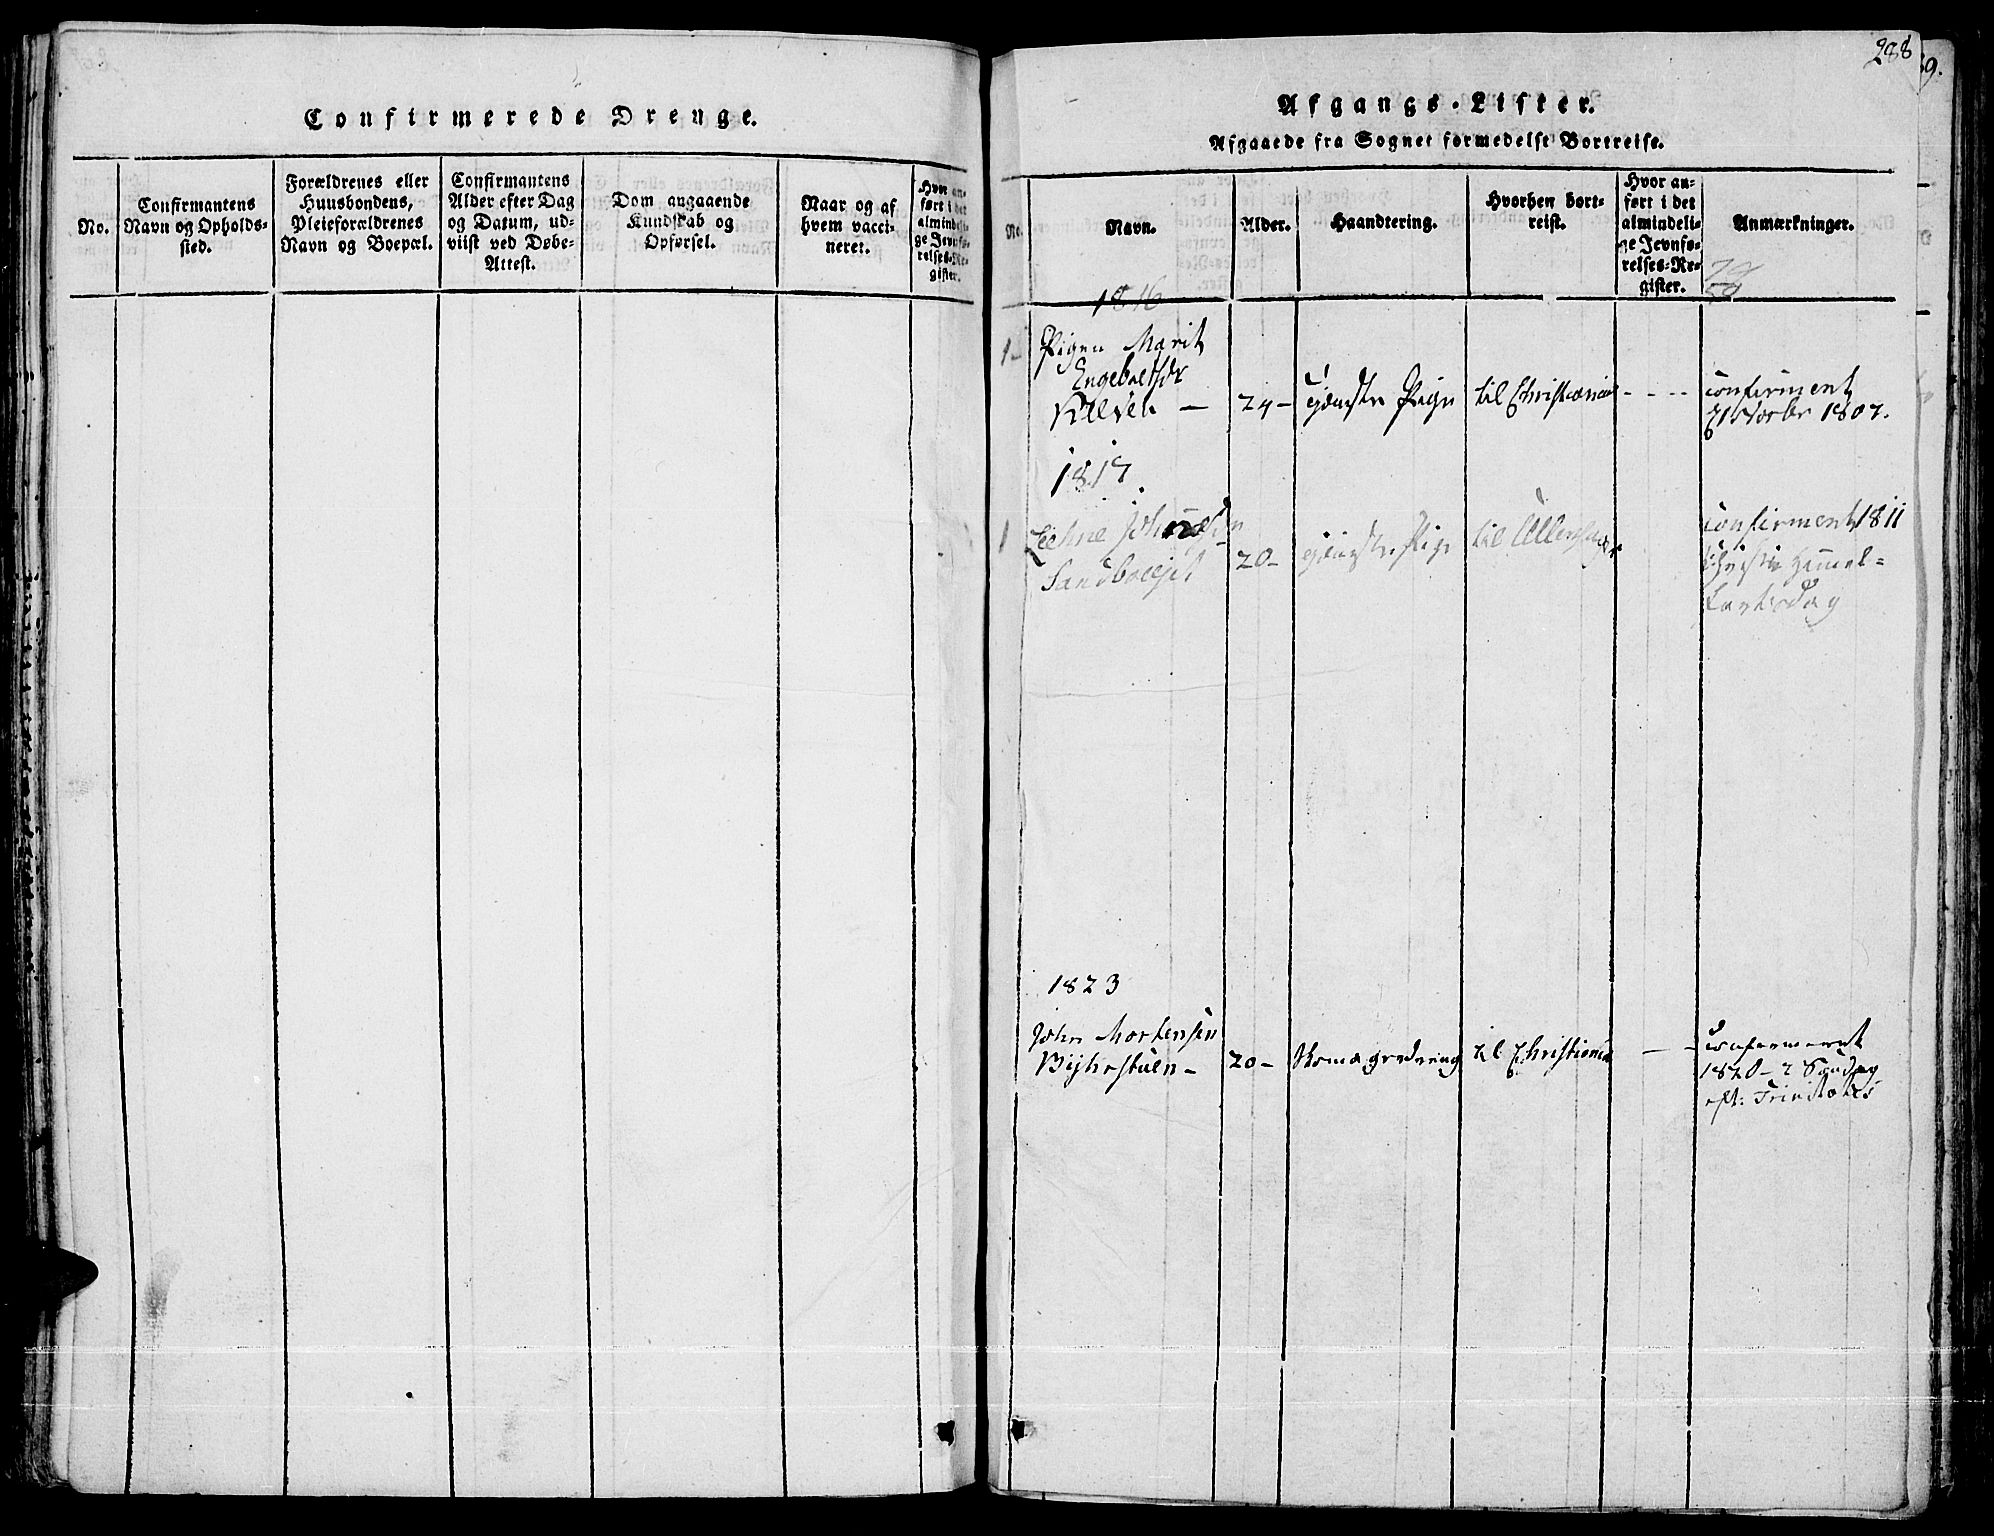 Confirmerede Drenge.
No.
Confirmantens
Navn og Opholds-
sted.
Forældrenes eller
Huusbondens,
Pleieforældrenes
Navn og Boepæl.
Confirmantens
Alder efter Dag
og Datum, ud-
viist ved Døbe-
Attest.
Dom angaaende
Kundskab og
Opførsel.
Naar og af
hvem vacci-
neret.
Hvor an-
ført i det
almindeli-
ge Jevnfø-
relses-Re-
gister.
288
39.
Afgangs-Lister.
Afgaaede fra Sognet formedelst Bortreise.
No.
Navn.
Alder.
Haandtering.
Hvorhen bort-
reist.
Hvor an-
ført i det
almindeli-
ge Jevnfø-
relses-Re-
gister.
Anmærkninger.
1816
1-
Pigen Marit
24-
tjenste Pige
til Christiania
confirmeret
1807.
1817.
1
20-
tjenste Pige
til Ullensager
confirmeret 1811
Christie Himel=
fartsdag
1823
John Mortensen
20-
til Christiania
confirmeret
1820 - 2 Søndag
eft: Trinitatis